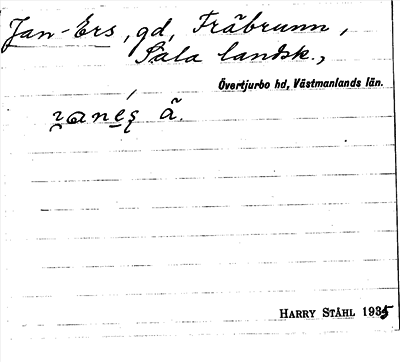 Jan-Ers, gd, Träbrunn,
Sala landsk.,
Övertjurbo hd, Västmanlands län.
HARRY STÅHL 1935